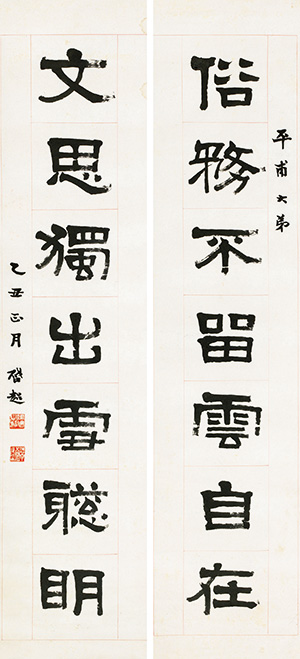 平甫大弟
俗務不留雲自在
文思獨出雪聰明
乙丑正月 啓超